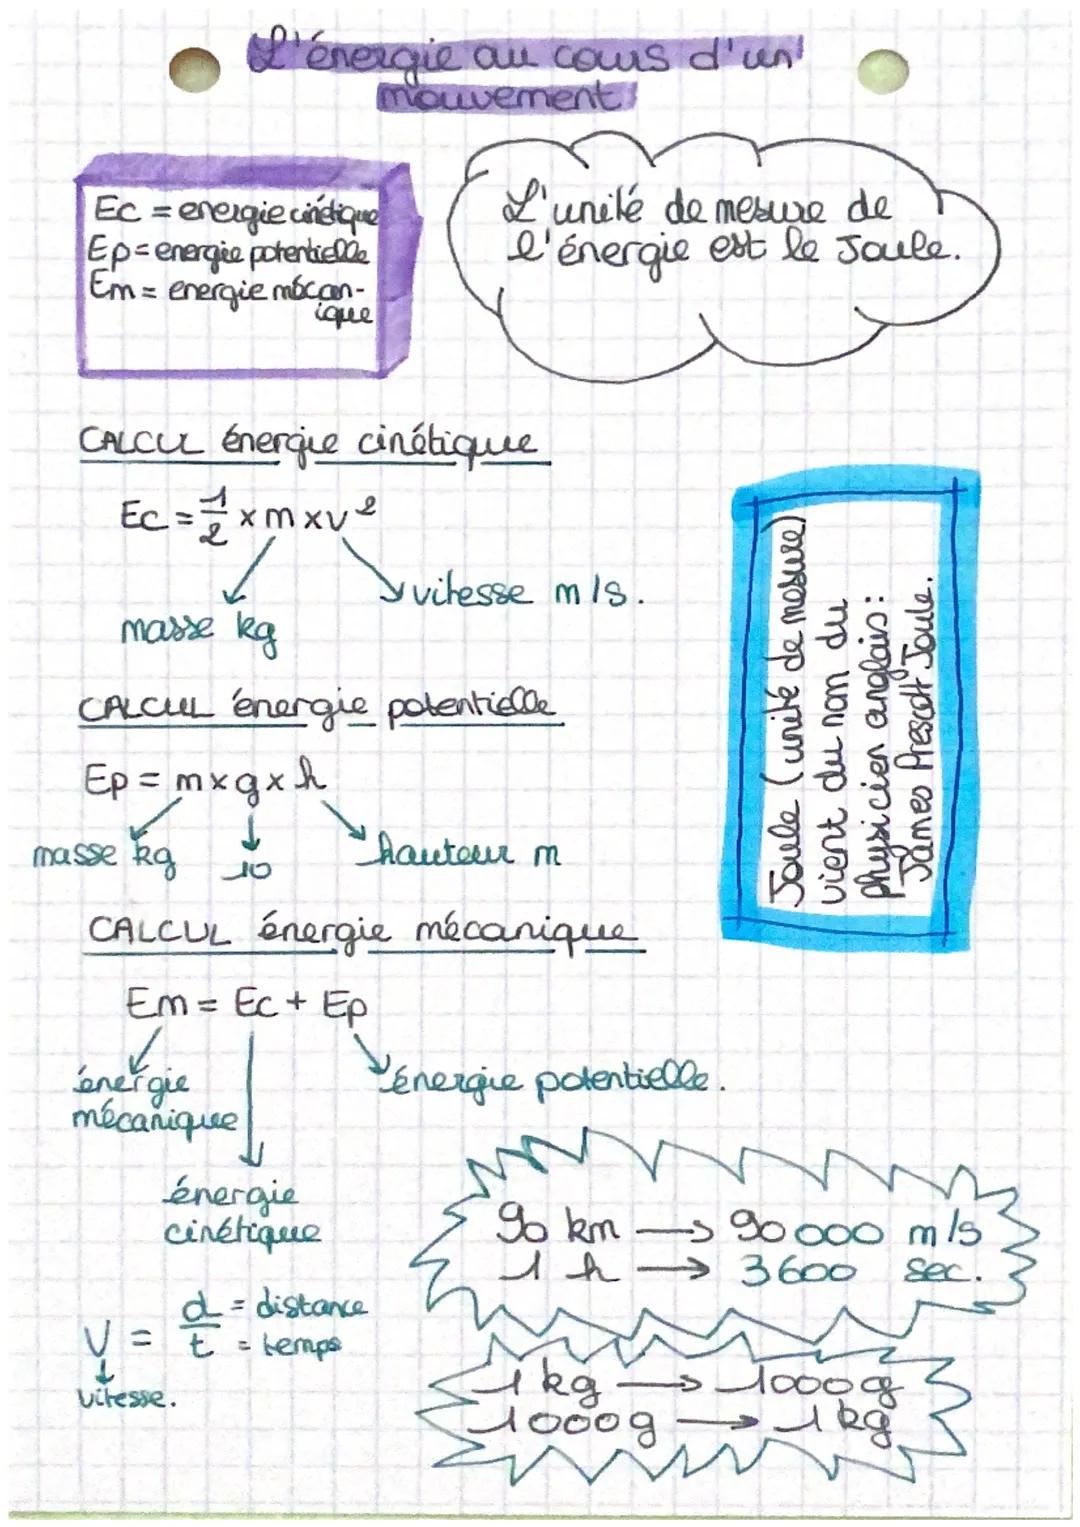 L'énergie au cours d'un
mouvement
Ec = energie cinétique
Ep = energie potentielle
Em = energie mécan-
ique
L'unité de mesure de
l'énergie est le Joule.
CALCUL énergie cinétique
Ec = 1/2 x m x v²
vitesse m/s.
masse kg
Joule (unité de mesure)
vient du nom du
physicien anglais :
James Prescott Joule.
CALCUL énergie potentielle
Ep = m x g x h
masse kg
10
hauteur m
CALCUL énergie mécanique
Em = Ec + Ep
énergie
mécanique
énergie potentielle.
énergie
cinétique
90 km → 90 000 m/s
1 h → 3600 sec.
V = d/t
d = distance
t = temps
vitesse.
1 kg → 1000g
1000g → 1 kg